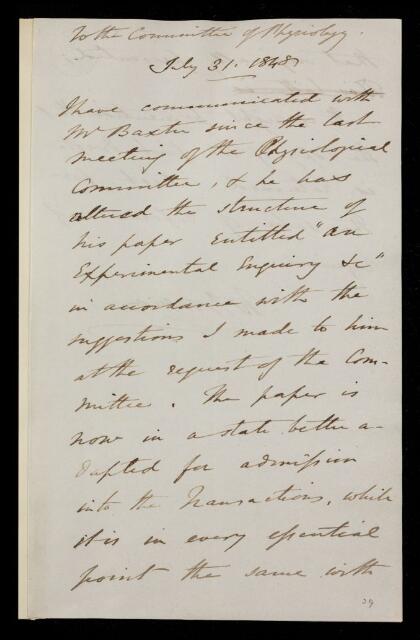 To the Committee of Physiology.
July 31. 1848
I have communicated with
Mr Baxter since the last
meeting of the Physiological
Committee, & he has
altered the structure of
his paper entitled "an
Experimental Enquiry &c"
in accordance with the
suggestions I made to him
at the request of the Com-
mittee. The paper is
now in a state better a-
dapted for admission
into the Transactions, while
it is in every essential
point the same with
39